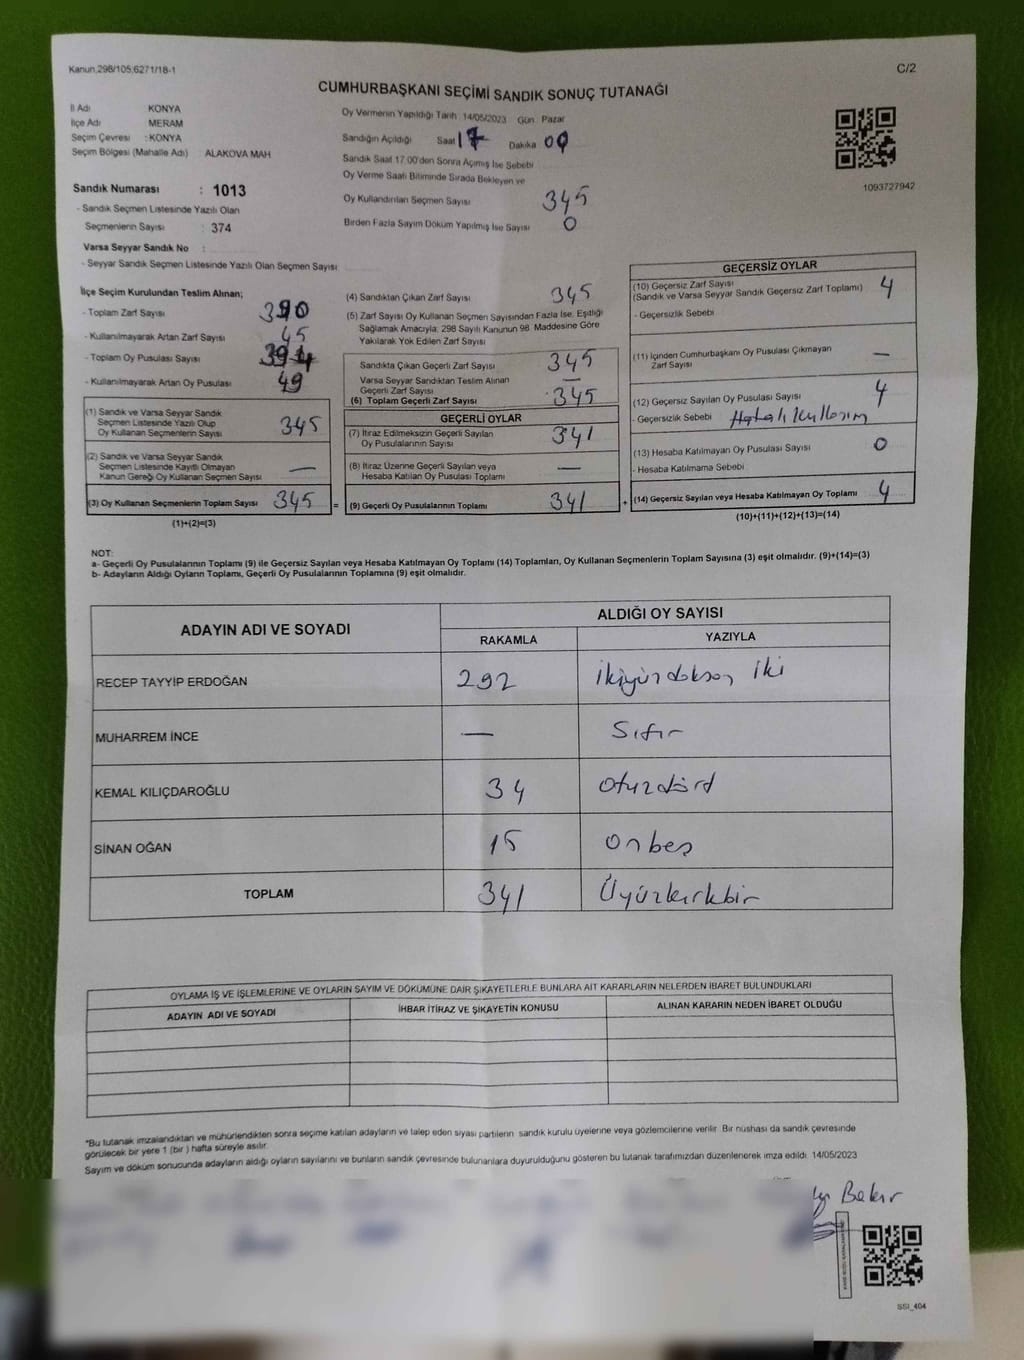 Kanun,298/105,6271/18-1
C/2
CUMHURBAŞKANI SEÇİMİ SANDIK SONUÇ TUTANAĞI
İl Adı KONYA
İlçe Adı MERAM
Seçim Çevresi : KONYA
Seçim Bölgesi (Mahalle Adı) ALAKOVA MAH
Oy Vermenin Yapıldığı Tarih 14/05/2023 Gün Pazar
Sandığın Açıldığı Saat 17 Dakika 00
Sandık Saat 17.00'den Sonra Açımış İse Sebebi
Oy Verme Saati Bitiminde Sırada Bekleyen ve
Oy Kullandırılan Seçmen Sayısı 345
Birden Fazla Sayım Döküm Yapılmış İse Sayısı 0
1093727942
Sandık Numarası : 1013
- Sandık Seçmen Listesinde Yazılı Olan
Seçmenlerin Sayısı : 374
Varsa Seyyar Sandık No :
- Seyyar Sandık Seçmen Listesinde Yazılı Olan Seçmen Sayısı
İlçe Seçim Kurulundan Teslim Alınan;
- Toplam Zarf Sayısı 390
- Kullanılmayarak Artan Zarf Sayısı 45
- Toplam Oy Pusulası Sayısı 394
- Kullanılmayarak Artan Oy Pusulası 49
(1) Sandık ve Varsa Seyyar Sandık
Seçmen Listesinde Yazılı Olup
Oy Kullanan Seçmenlerin Sayısı 345
(2) Sandık ve Varsa Seyyar Sandık
Seçmen Listesinde Kayıtlı Olmayan
Kanun Gereği Oy Kullanan Seçmen Sayısı —
(3) Oy Kullanan Seçmenlerin Toplam Sayısı 345 =
(1)+(2)=(3)
(4) Sandıktan Çıkan Zarf Sayısı 345
(5) Zarf Sayısı Oy Kullanan Seçmen Sayısından Fazla İse, Eşitliği
Sağlamak Amacıyla, 298 Sayılı Kanunun 98. Maddesine Göre
Yakılarak Yok Edilen Zarf Sayısı
Sandıkta Çıkan Geçerli Zarf Sayısı 345
Varsa Seyyar Sandıktan Teslim Alınan
Geçerli Zarf Sayısı —
(6) Toplam Geçerli Zarf Sayısı 345
GEÇERLİ OYLAR
(7) İtiraz Edilmeksizin Geçerli Sayılan
Oy Pusulalarının Sayısı 341
(8) İtiraz Üzerine Geçerli Sayılan veya
Hesaba Katılan Oy Pusulası Toplamı —
(9) Geçerli Oy Pusulalarının Toplamı 341 +
GEÇERSİZ OYLAR
(10) Geçersiz Zarf Sayısı
(Sandık ve Varsa Seyyar Sandık Geçersiz Zarf Toplamı) 4
- Geçersizlik Sebebi
(11) İçinden Cumhurbaşkanı Oy Pusulası Çıkmayan
Zarf Sayısı —
(12) Geçersiz Sayılan Oy Pusulası Sayısı 4
- Geçersizlik Sebebi Hatalı kullanım
(13) Hesaba Katılmayan Oy Pusulası Sayısı 0
- Hesaba Katılmama Sebebi
(14) Geçersiz Sayılan veya Hesaba Katılmayan Oy Toplamı 4
(10)+(11)+(12)+(13)=(14)
NOT:
a- Geçerli Oy Pusulalarının Toplamı (9) ile Geçersiz Sayılan veya Hesaba Katılmayan Oy Toplamı (14) Toplamları, Oy Kullanan Seçmenlerin Toplam Sayısına (3) eşit olmalıdır. (9)+(14)=(3)
b- Adayların Aldığı Oyların Toplamı, Geçerli Oy Pusulalarının Toplamına (9) eşit olmalıdır.
ADAYIN ADI VE SOYADI
ALDIĞI OY SAYISI
RAKAMLA YAZIYLA
RECEP TAYYİP ERDOĞAN 292 İkiyüzdoksan iki
MUHARREM İNCE — Sıfır
KEMAL KILIÇDAROĞLU 34 Otuzdört
SİNAN OĞAN 15 Onbeş
TOPLAM 341 Üçyüzkırkbir
OYLAMA İŞ VE İŞLEMLERİNE VE OYLARIN SAYIM VE DÖKÜMÜNE DAİR ŞİKAYETLERLE BUNLARA AİT KARARLARIN NELERDEN İBARET BULUNDUKLARI
ADAYIN ADI VE SOYADI İHBAR İTİRAZ VE ŞİKAYETİN KONUSU ALINAN KARARIN NEDEN İBARET OLDUĞU
*Bu tutanak imzalandıktan ve mühürlendikten sonra seçime katılan adayların ve talep eden siyasi partilerin sandık kurulu üyelerine veya gözlemcilerine verilir. Bir nüshası da sandık çevresinde
görülecek bir yere 1 (bir) hafta süreyle asılır.
Sayım ve döküm sonucunda adayların aldığı oyların sayılarını ve bunların sandık çevresinde bulunanlara duyurulduğunu gösteren bu tutanak tarafımızdan düzenlenerek imza edildi. 14/05/2023
Bakır
SSI_404